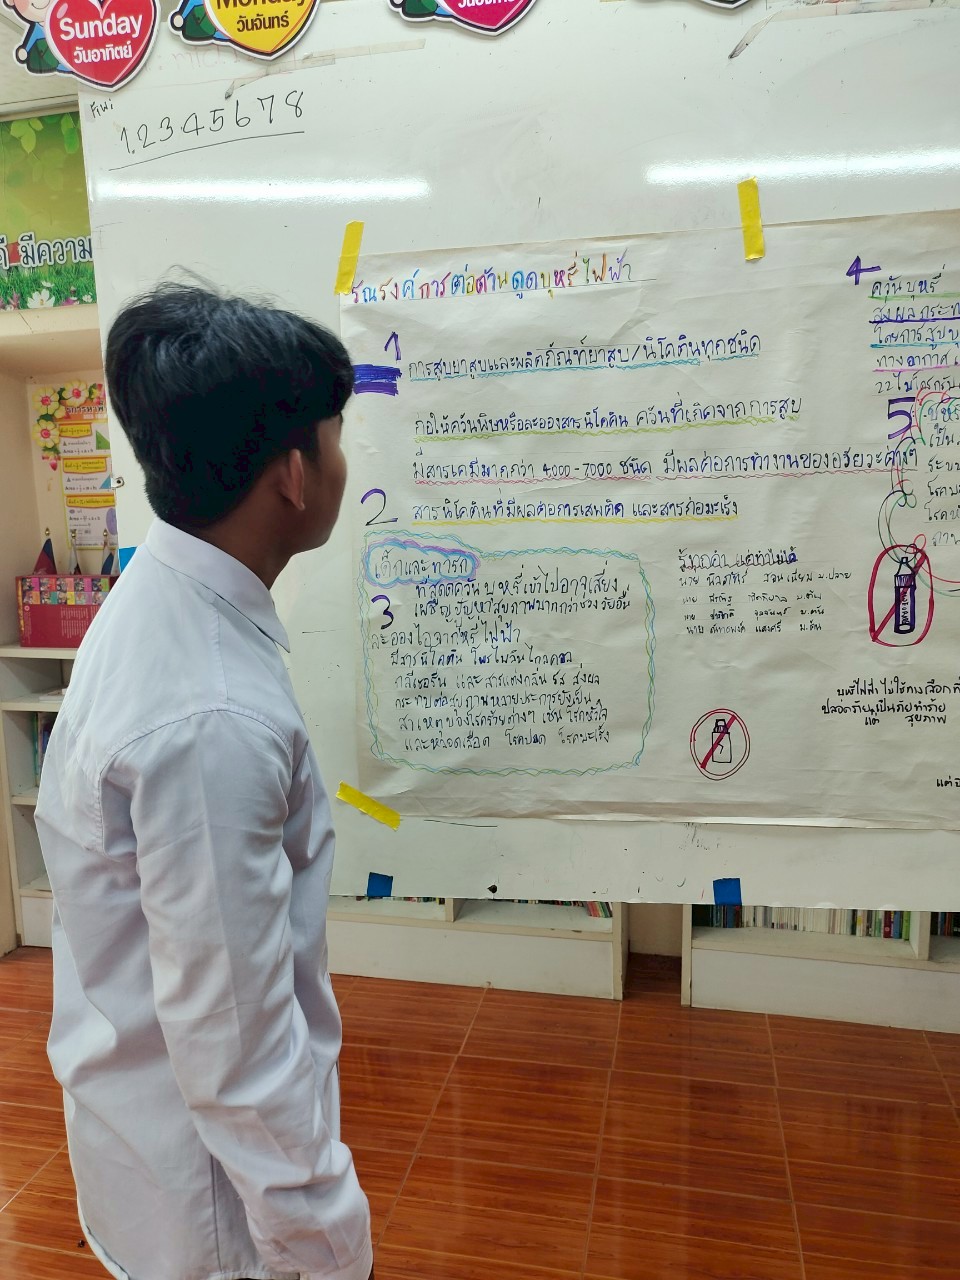 Sunday
วันอาทิตย์
Monday
วันจันทร์
1.2345678
มีความ
รณรงค์การต่อต้านดูดบุหรี่ไฟฟ้า
1
การสูบยาสูบและผลิตภัณฑ์ยาสูบ/นิโคตินทุกชนิด
ก่อให้ควันพิษหรือละอองสารนิโคติน ควันที่เกิดจากการสูบ
มีสารเคมีมากกว่า 4000-7000 ชนิด มีผลต่อการทำงานของอวัยวะต่างๆ
2
สารนิโคตินที่มีผลต่อการเสพติด และสารก่อมะเร็ง
เด็กและทารก
ที่สูดดควันบุหรี่เข้าไปอาจเสี่ยง
3
เผชิญปัญหาสุขภาพมากกว่าช่วงวัยอื่น
ละอองไอจากหรี่ไฟฟ้า
มีสารนิโคติน โพรไพลีนไกลคอล
กลีเซอรีน และสารแต่งกลิ่น รส ส่งผล
กระทบต่อสุขภาพหลายประการยังเป็น
สาเหตุของโรคร้ายต่างๆ เช่น โรคหัวใจ
และหลอดเลือด โรคปอด โรคมะเร็ง
4
ควันบุหรี่
ส่งผลกระท
โดยการสูบบุ
ทางอากาศ
22 ไมโครกรัม
5
เป็น
ระบบ
นาย
ม.ปลาย
นาย
ม.ต้น
นาย
ม.ต้น
นาย
ม.ต้น
บุหรี่ไฟฟ้า ไม่ใช่ทางเลือกที่
ปลอดภัย เป็นภัยทำร้าย
แต่
สุขภาพ